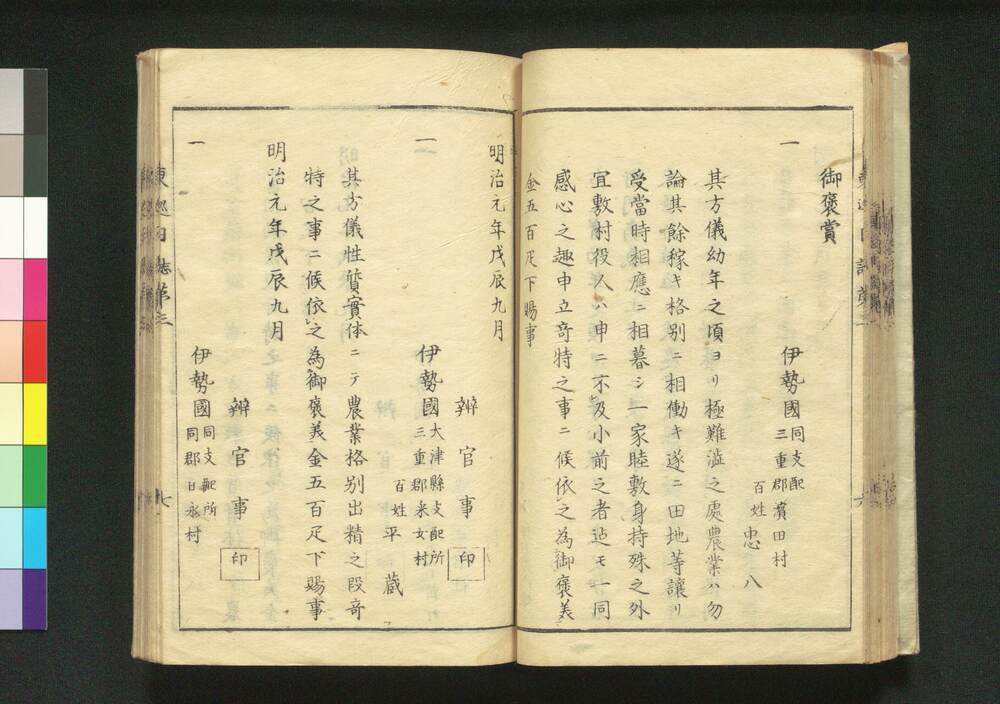 御褒賞
一
伊勢國同支配
三重郡濱田村
百姓忠八
其方儀幼年之頃ヨリ極難澁之處農業ハ勿
論其餘稼キ格別ニ相働キ遂ニ田地等讓リ
受當時相應ニ相暮シ一家睦敷身持殊之外
宜敷村役人ハ申ニ不及小前之者迠モ一同
感心之趣申立竒特之事ニ候依之為御褒美
金五百疋下賜事
明治元年戊辰九月
辨官事印
一
伊勢國大津縣支配所
三重郡采女村
百姓平蔵
其方儀性質實体ニテ農業格别出精之段竒
特之事ニ候依之為御褒美金五百疋下賜事
明治元年戊辰九月
辨官事印
一
伊勢國同支配所
同郡日永村
東巡日誌第三
七